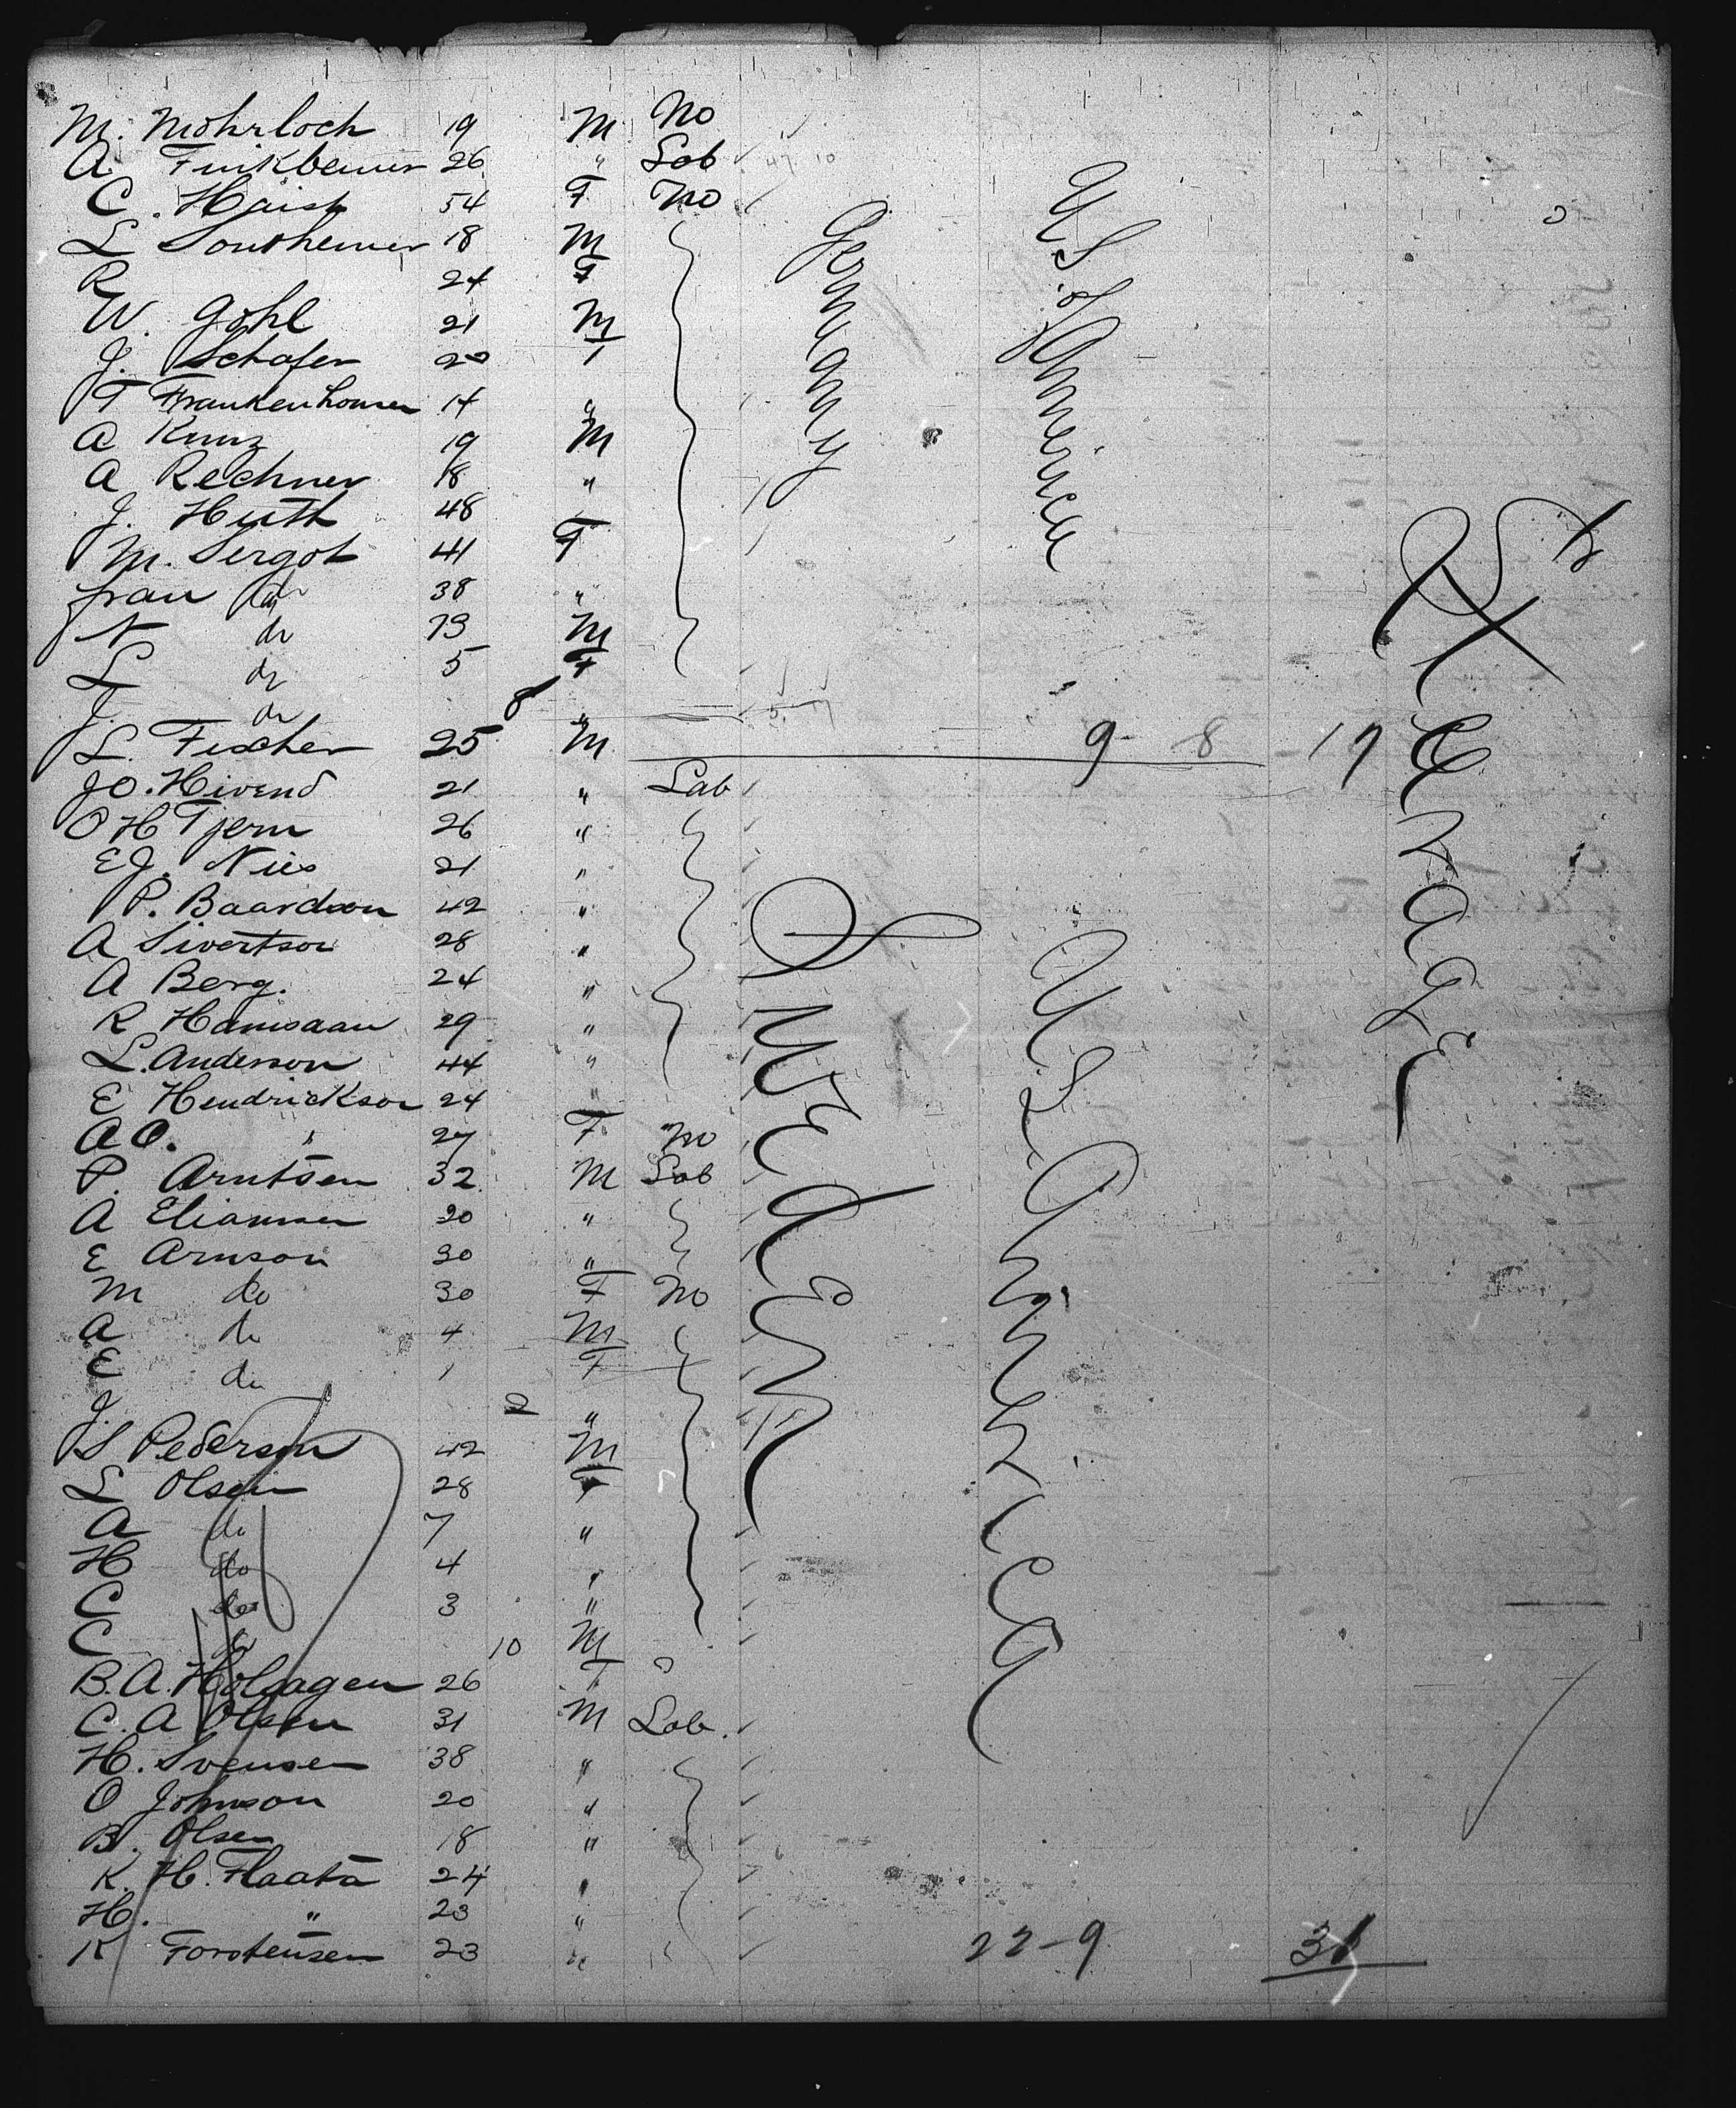 M. Mohrloch 19 M No
A. Finkbeiner 26 " Lab
C. Haish 54 F No
L Sontheimer 18 M
R 24 F
W. Gohl 21 M
J. Schafer 20 F
F Frankenhouser 14 "
A Kunz 19 M
A Rechner 18 "
J. Huth 48 "
M. Sergot 41 F
frau do 38 "
N do 13 M
L do 5 F
J. do 8 "
Germany
U S of America
L. Fischer 25 M
9 - 8 - 17
JO. Hivend 21 " Lab
O H Tjern 26 "
E J. Nies 21 "
P. Baardson 42 "
A Sivertson 28 "
A Berg. 24 "
R Hamsaan 29 "
L. Anderson 44 "
E Hendrickson 24 "
A O. " 27 F No
P. Arntsen 32 M Lab
A Eliamsen 20 "
E Arnson 30 "
M do 30 F No
A do 4 M
E do 1 F
J. 2 "
S Pederson 42 M
L Olsen 28 F
A do 7 "
H do 4 "
C do 3 "
C do 10 M
B. A. Holhagen 26 F
C. A Olsen 31 M Lab.
H. Svensen 38 "
O Johnson 20 "
B. Olsen 18 "
K. H. Flaata 24 "
H. " 23 "
K Forstensen 23 "
SwEdEn
U S America
StEEragE
22 - 9 31